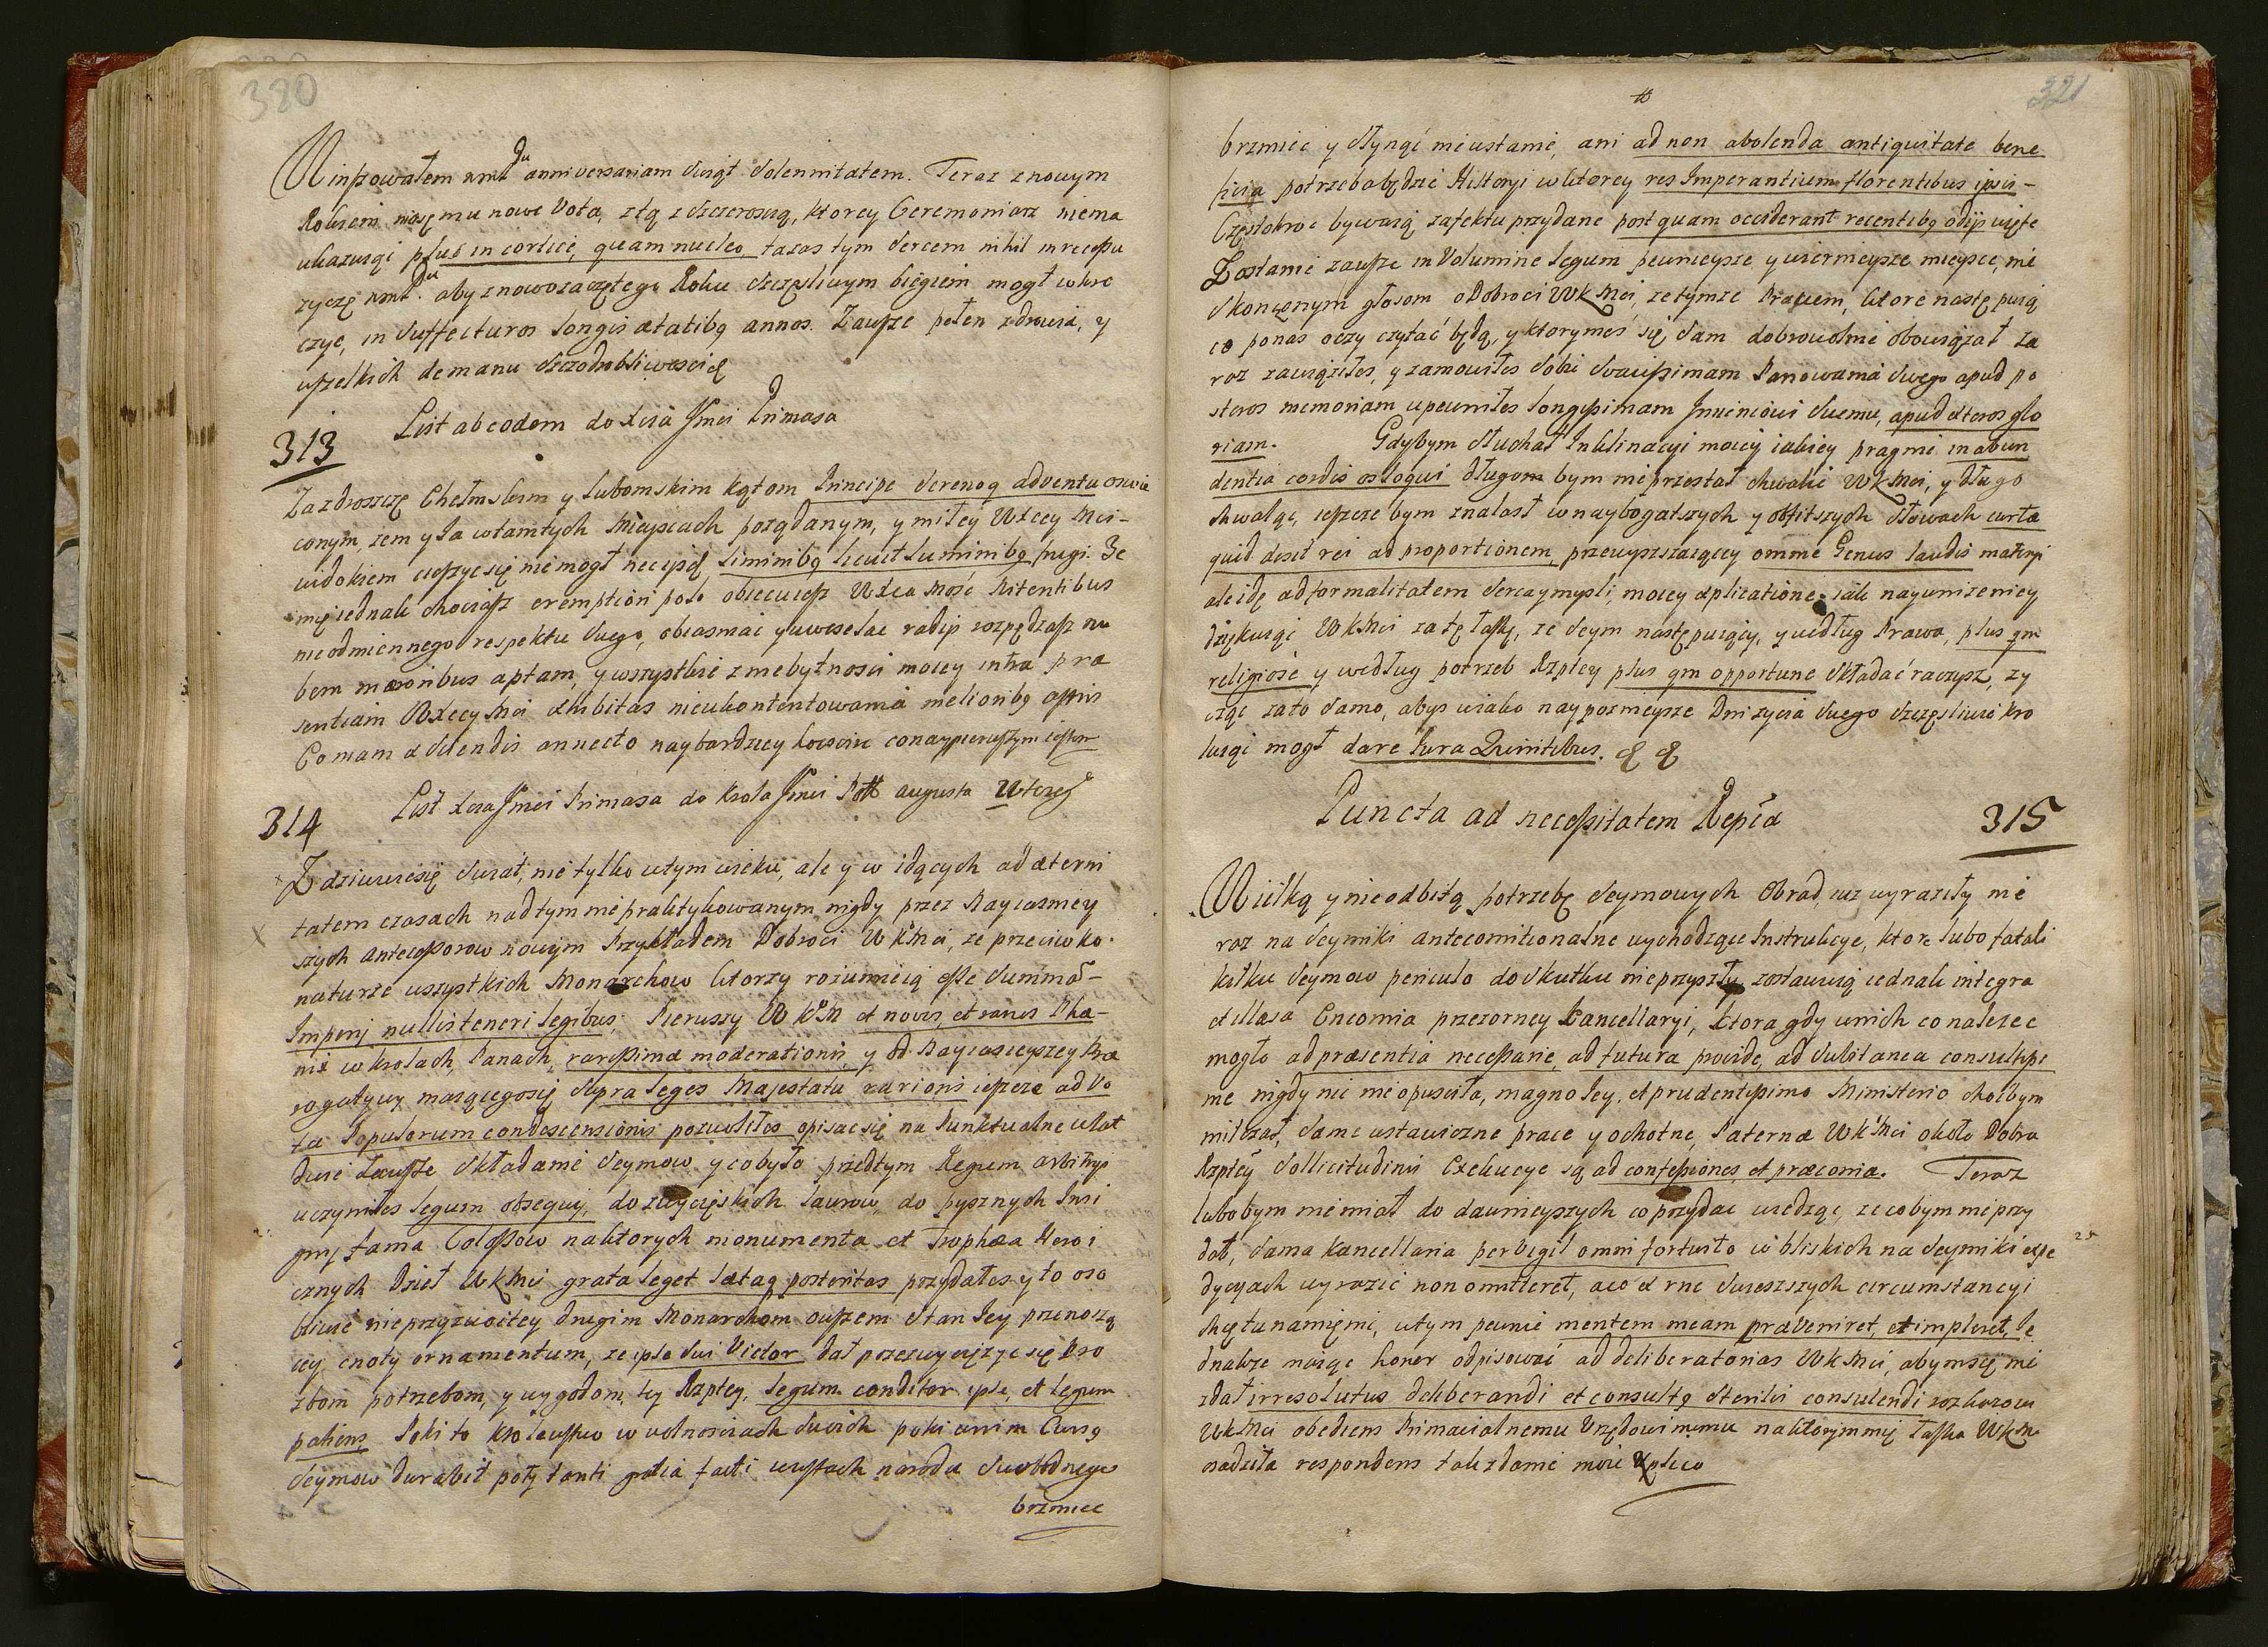 380
Winszowałem wmć Du anniversariam Swiąt Solennitatem. Teraz z nowym
Rokiem niosę mu nowe Vota, z tą z Szczeroscią, ktorey Ceremoniarz niema
ukazuiąc plus in cortice, quam nucleo, takas tym Sercem nihil in recessu
zyczę wmć Du. aby znowozaczętego Roku Szczęsliwym biegiem mogł wkro
czyc, in Suffecturos longis ætatibg annos. Zawsze pełen zdrowia, y
wszelkich de manu Szczodrobliwoscią
313
List ab eodem do Xcia Jmci Primasa
Zazdroszczę Chełmskim y Lubomskim kątom Principe Serenoq adventu oswie
conym, zem y Ia w tamtych Mieyscach pożądanym, y miłey WXcey Mci-
widokiem cieszyc się nie mogł nec ipsis liminibg licuit luminibg frugi. Ze
mię iednak chociasz exemption polo obiecuiesz WXca Mość Nitentibus
nieodmiennego respektu Swego, obiasniac y uweselac radiis rozpędzasz nu
bem mæroribus aptam, y wszystkie z niebytnosci moiey intra præ
sentiam WXcey Mci exhibitas nieukontentowania melioribg
Co mam a Silendis annecto naybardziey
314
List Xcia Jmci Primasa do krola Jmci Poll Augusta Wtoreg
Zdziwuiesię Swiat, nie tylko wtym wieku, ale y w idących ad æterni
tatem czasach nad tym nie praktykowanym nigdy przez Nayiasniey
szych Antecessorow nowym Przykładem Dobroci WKMci, ze przeciwko
naturze wszystkich Monarchow ktorzy rozumieią esse Summa-
Imperij nullis teneri legibus; Pierwszy WKM et novis, et raris Phæ-
nix w krolach, Panach, rarissimæ moderationis, y od Nayiasnieyszey Præ
rogatywy maiącegosię Supra leges Majestatu rarioris ieszcze ad Vo
ta Populorum condescensionis pozwoliłes opisac się na Punktualne w lat
Dwie Zawsze Składanie Seymow, y co było przedtym Regum arbitrij
uczyniłes legum obsequij, do zwycięskich laurow, do pysznych Insi
gnij fama Colossow na ktorych monumenta et Trophæa Heroi
cznych Dzieł WKMci grata leget lætaq posteritas przydałes y to oso
bliwie nieprzyzwoitey drugim Monarchom owszem Stan Iey przenoszą
cey cnoty ornamentum, ze ipse Sui Victor dał przezwyciężyc się Pro
zbom potrzebom, y wygodom, tey Rzptey. legum conditor ipse, et legum
patiens Poki to Krolewstwo w wolnosciach Swoich poki
Seymow durabit poty tanti gratia facti w ustach naroda Swobodnego
brzmiec
321
brzmiec y słynąć nieustanie, ani ad non abolenda antiquitate bene
ficia potrzeba będzie Historyi w ktorey res Imperantium florentibus ipsis-
Częstokroc bywaią zafektu przydane post quam occiderant recentibg odijs więte
Zostanie zawsze in Volumine legum pewnieysze y wiernieysze mieysce, nie
Skonczonym głosom o Dobroci WKMci, ze tymze Prawem, ktore następuią
ce po nas oczy czytać będą, y ktorymeś się Sam dobrowolnie obowiązał za
raz zawiązałes, y zamowiłes Sobie Svavissimam Panowania Swego apud po
steros memoriam upewniłes longissimam Imieniowi Swemu, apud exteros glo
riam. Gdybym Słuchał Inklinacyi moiey iakiey pragnie in abun
dentia cordis os loqui długom bym nieprzestał chwalić WKMci, y długo
chwaląc, ieszcze bym znalasł w naybogatszych y obfitszych Słowach curta
quid desit rei ad proportionem, przewyszszaiącey omne Genus laudis materyi
ale idę ad formalitatem Serca y mysli, moiey aplicatione, iak nayunizeniey
dziękuiąc WKMci za tę łaskę, ze Seym następuiący, y według Prawa, plus qm
religiosè y według potrzeb Rzptey plus qm opportune Składać raczysz, zy
cząc zato Samo, abys wiako naypoznieysze Dni zycia Swego Szczęsliwie kro
luiąc mogł dare Iura Quiritibus.
Puncta ad necessitatem Repcæ
315
Wielką y nieodbitą potrzebę Seymowych Obrad, iuz wyraziły nie
raz na Seymiki antecomitionalne wychodzące Instrukcye, ktore lubo fatali
kilku Seymow periculo do Skutku nieprzyszły, zostawuią iednak integra
et illæsa Encomia przezorney Kancellaryi, ktora gdy wnich co nalezec
mogło ad præsentia necessarie, ad futura provide, ad Substanea consultissi
me nigdy nic nie opusciła, magno Iey, et prudentissimo Ministerio choćbym
milczał, same ustawiczne prace y ochotne, Paternæ WKMci około Dobra
Rzptey Sollicitudinis Exekucye są ad confessiones, et præconia. Teraz
lubobym niemiał do dawnieyszych co przydac wiedząc, ze cobym nie przy
dał, sama Kancellaria pervigil omni fortuito w bliskich na Seymiki expe
dycyach wyrazic non omitteret, a co rne Swieszszych circumstancyi
chętu namięni, wtym pewnie mentem meam præveniret, et impleret, Ie
dnakze maiąc honor odpisować ad deliberatorias WKMci, abymsię nie
zdał irresolutus deliberandi et consultg Sterilis consulendi rozkazom
WKMci obediens Primacialnemu Urzędowi memu na ktorym mię łaska WKM
osadziła respondens tak zdanie moie explico